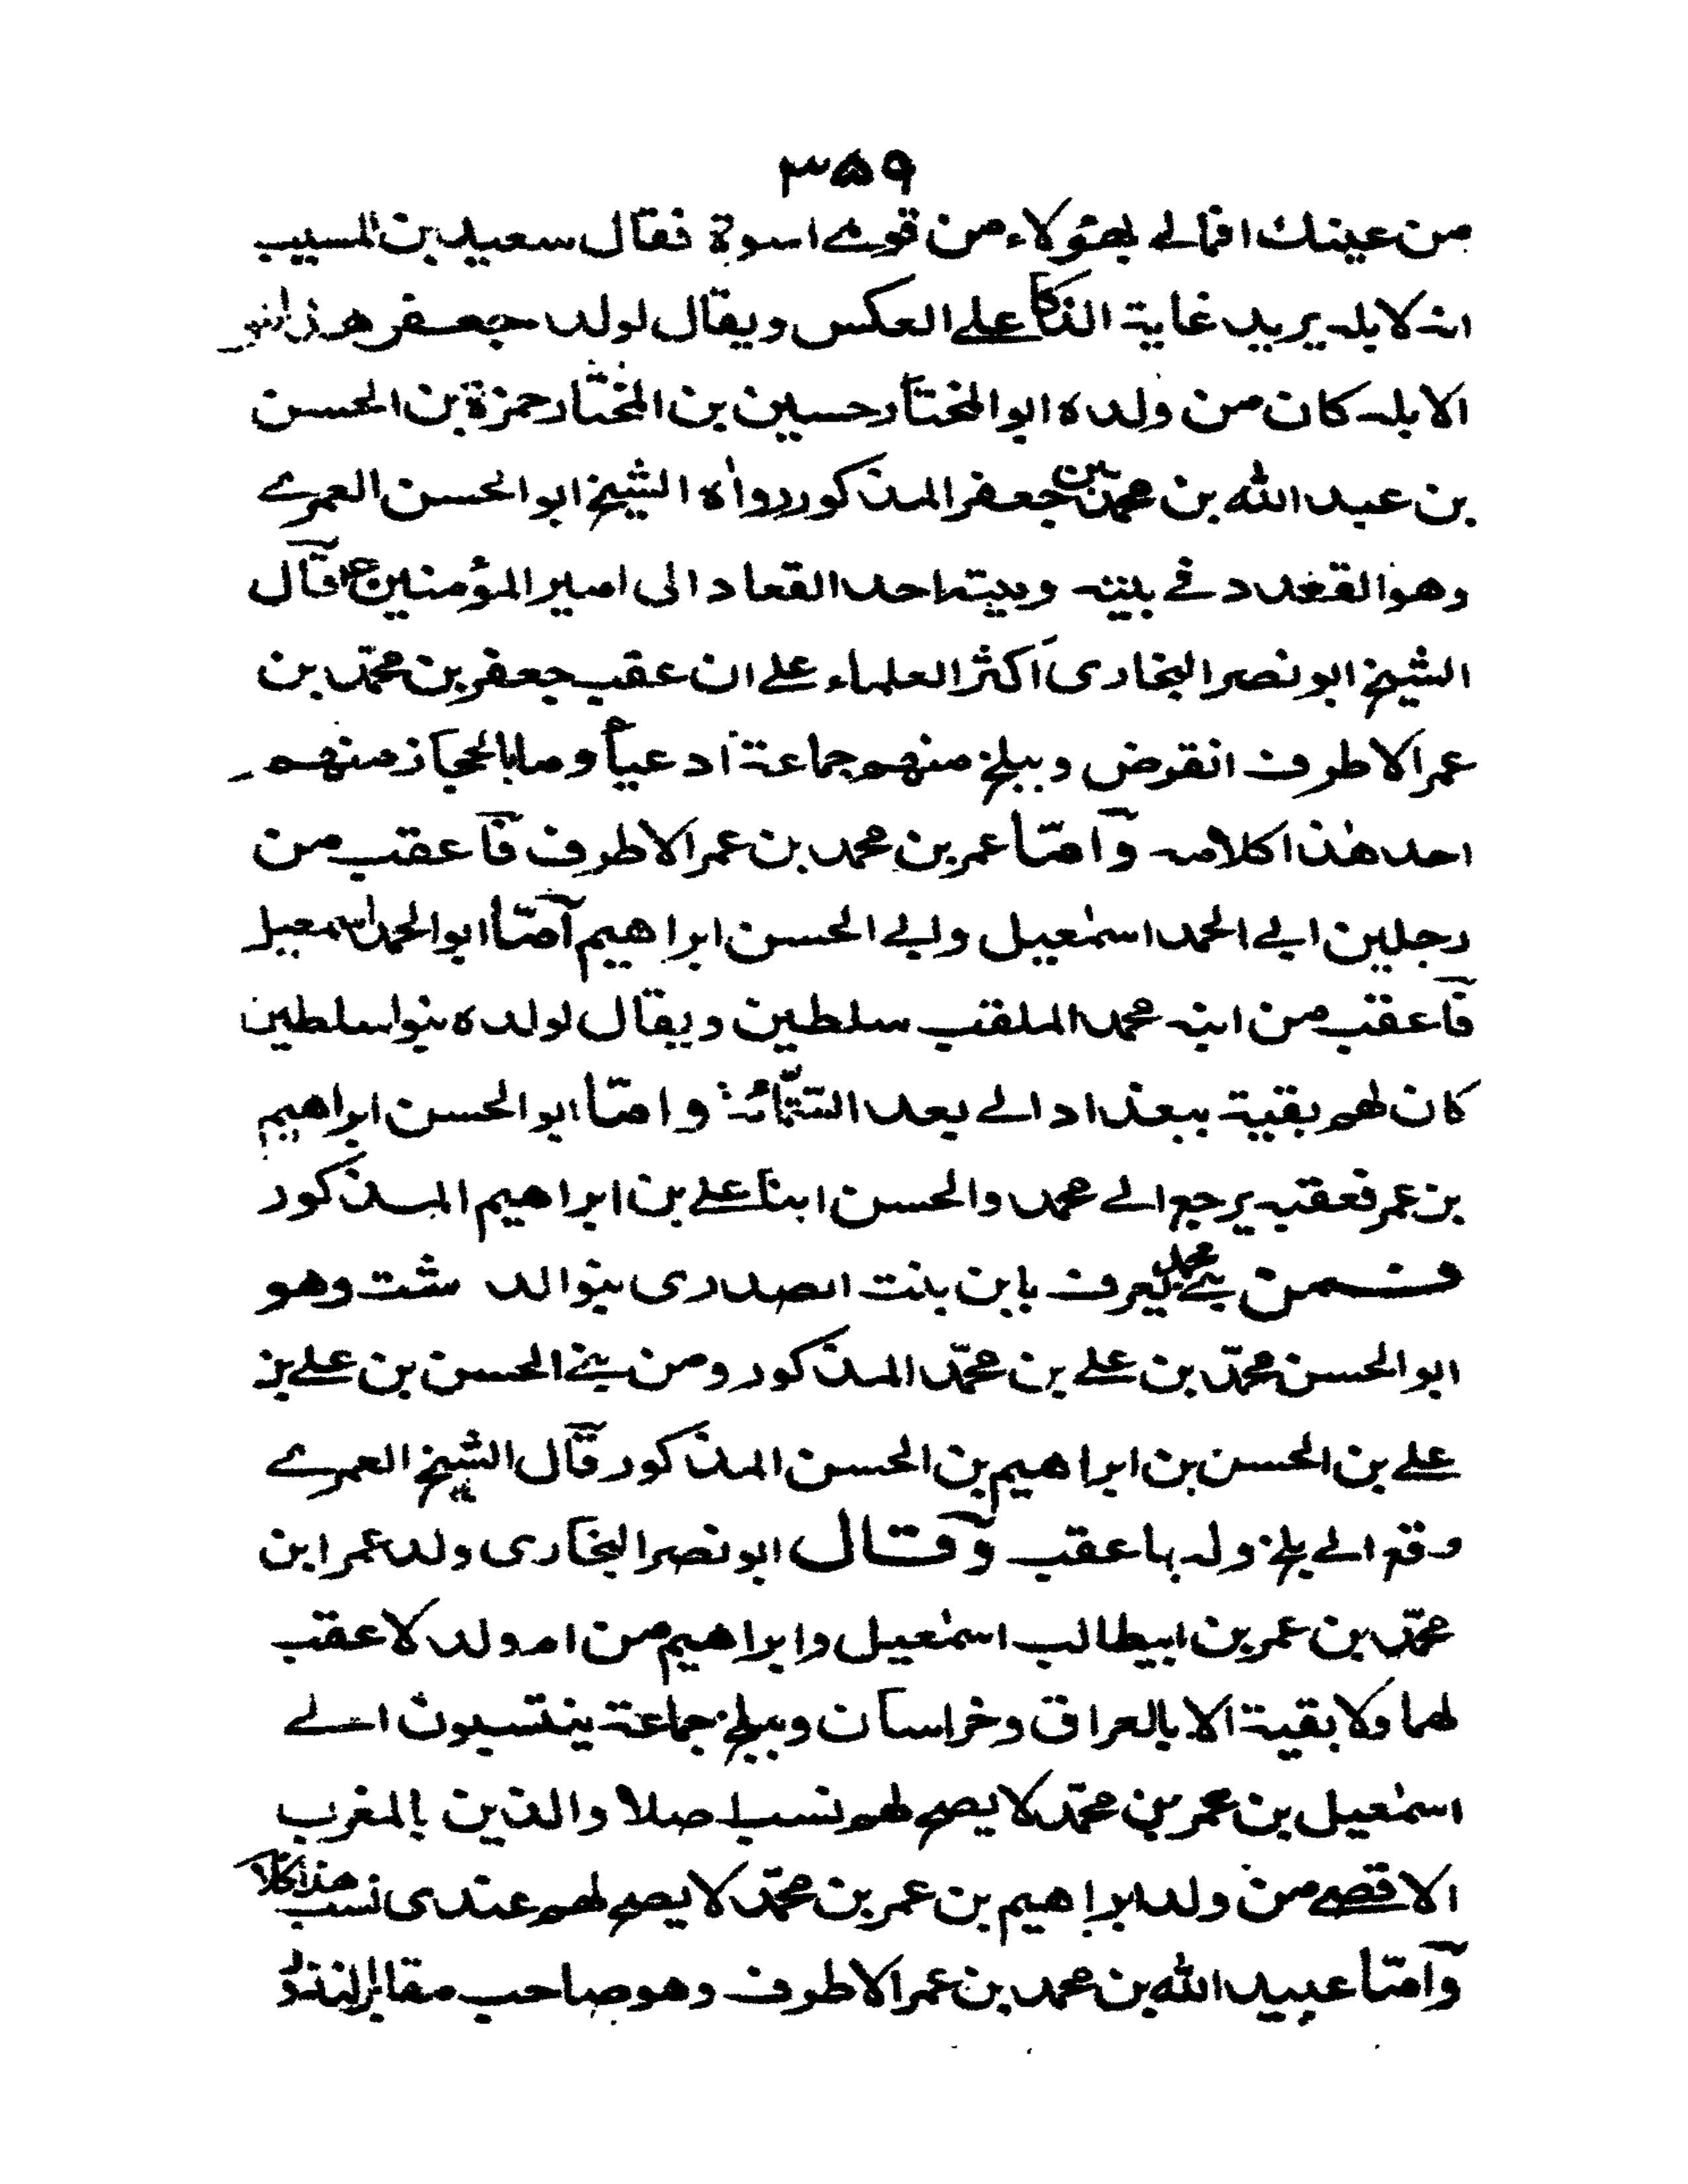 ٣۵٩
من عينك افمالي بهؤلاء من قومي اسوة فقال سعيد بن المسيب
انه لابله يريد غاية الذكا على العكس ويقال لولد جعفر هذا بنو
الابله كان من ولده ابو المختار حسين بن المختار حمزة بن الحسن
بن عبد الله بن محمد بن جعفر المذكور رواه الشيخ ابو الحسن العمري
وهو القعدد في بنيه وبيته احد القعاد الى امير المؤمنين ع قال
الشيخ ابو نصر البخارى اكثر العلماء على ان عقب جعفر بن محمد بن
عمر الاطرف انقرض وببلخ منهم جماعة ادعيا وما بالحجاز منهم
احد هذا كلامه وامّا عمر بن محمد بن عمر الاطرف فاعقب من
رجلين ابي الحمد اسمعيل وابي الحسن ابراهيم امّا ابو الحمد اسمعيل
فاعقب من ابنه محمد الملقب سلطين ويقال لولده بنو سلطين
كان لهم بقية ببغداد الى بعد الستّمائة وامّا ابو الحسن ابراهيم
بن عمر فعقبه يرجع الى محمد والحسن ابنا على بن ابراهيم المذكور
فمن بني محمد يعرف بابن بنت الصدرى بنو الد شت وهو
ابو الحسن محمّد بن علي بن محمّد المذكور ومن بني الحسن بن علي بن
علي بن الحسن بن ابراهيم بن الحسن المذكور قال الشيخ العمري
وقع الى بلخ وله بها عقب وقال ابو نصر البخارى ولد عمر ابن
محمّد بن عمر بن ابيطالب اسمعيل وابراهيم من ام ولد لا عقب
لهما ولا بقية الا بالعراق وخراسان وببلخ جماعة ينتسبون الى
اسمعيل بن عمر بن محمّد لا يصح لهم نسب اصلا والذين بالمغرب
الاقصى من ولد ابراهيم بن عمر بن محمّد لا يصح لهم عندى نسب هذا كلا
وامّا عبيد الله بن محمد بن عمر الاطرف وهو صاحب مقابر النذور